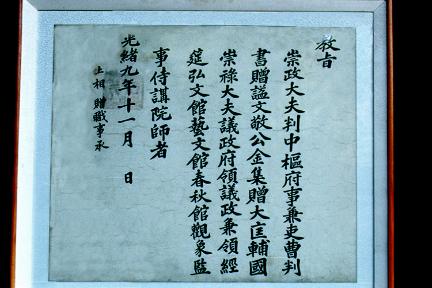 敎旨
崇政大夫判中樞府事兼吏曹判
書贈諡文敬公金集贈大匡輔國
崇祿大夫議政府領議政兼領經
筵弘文館藝文館春秋館觀象監
事侍講院師者
光緖九年十一月 日
上相 贈職事承